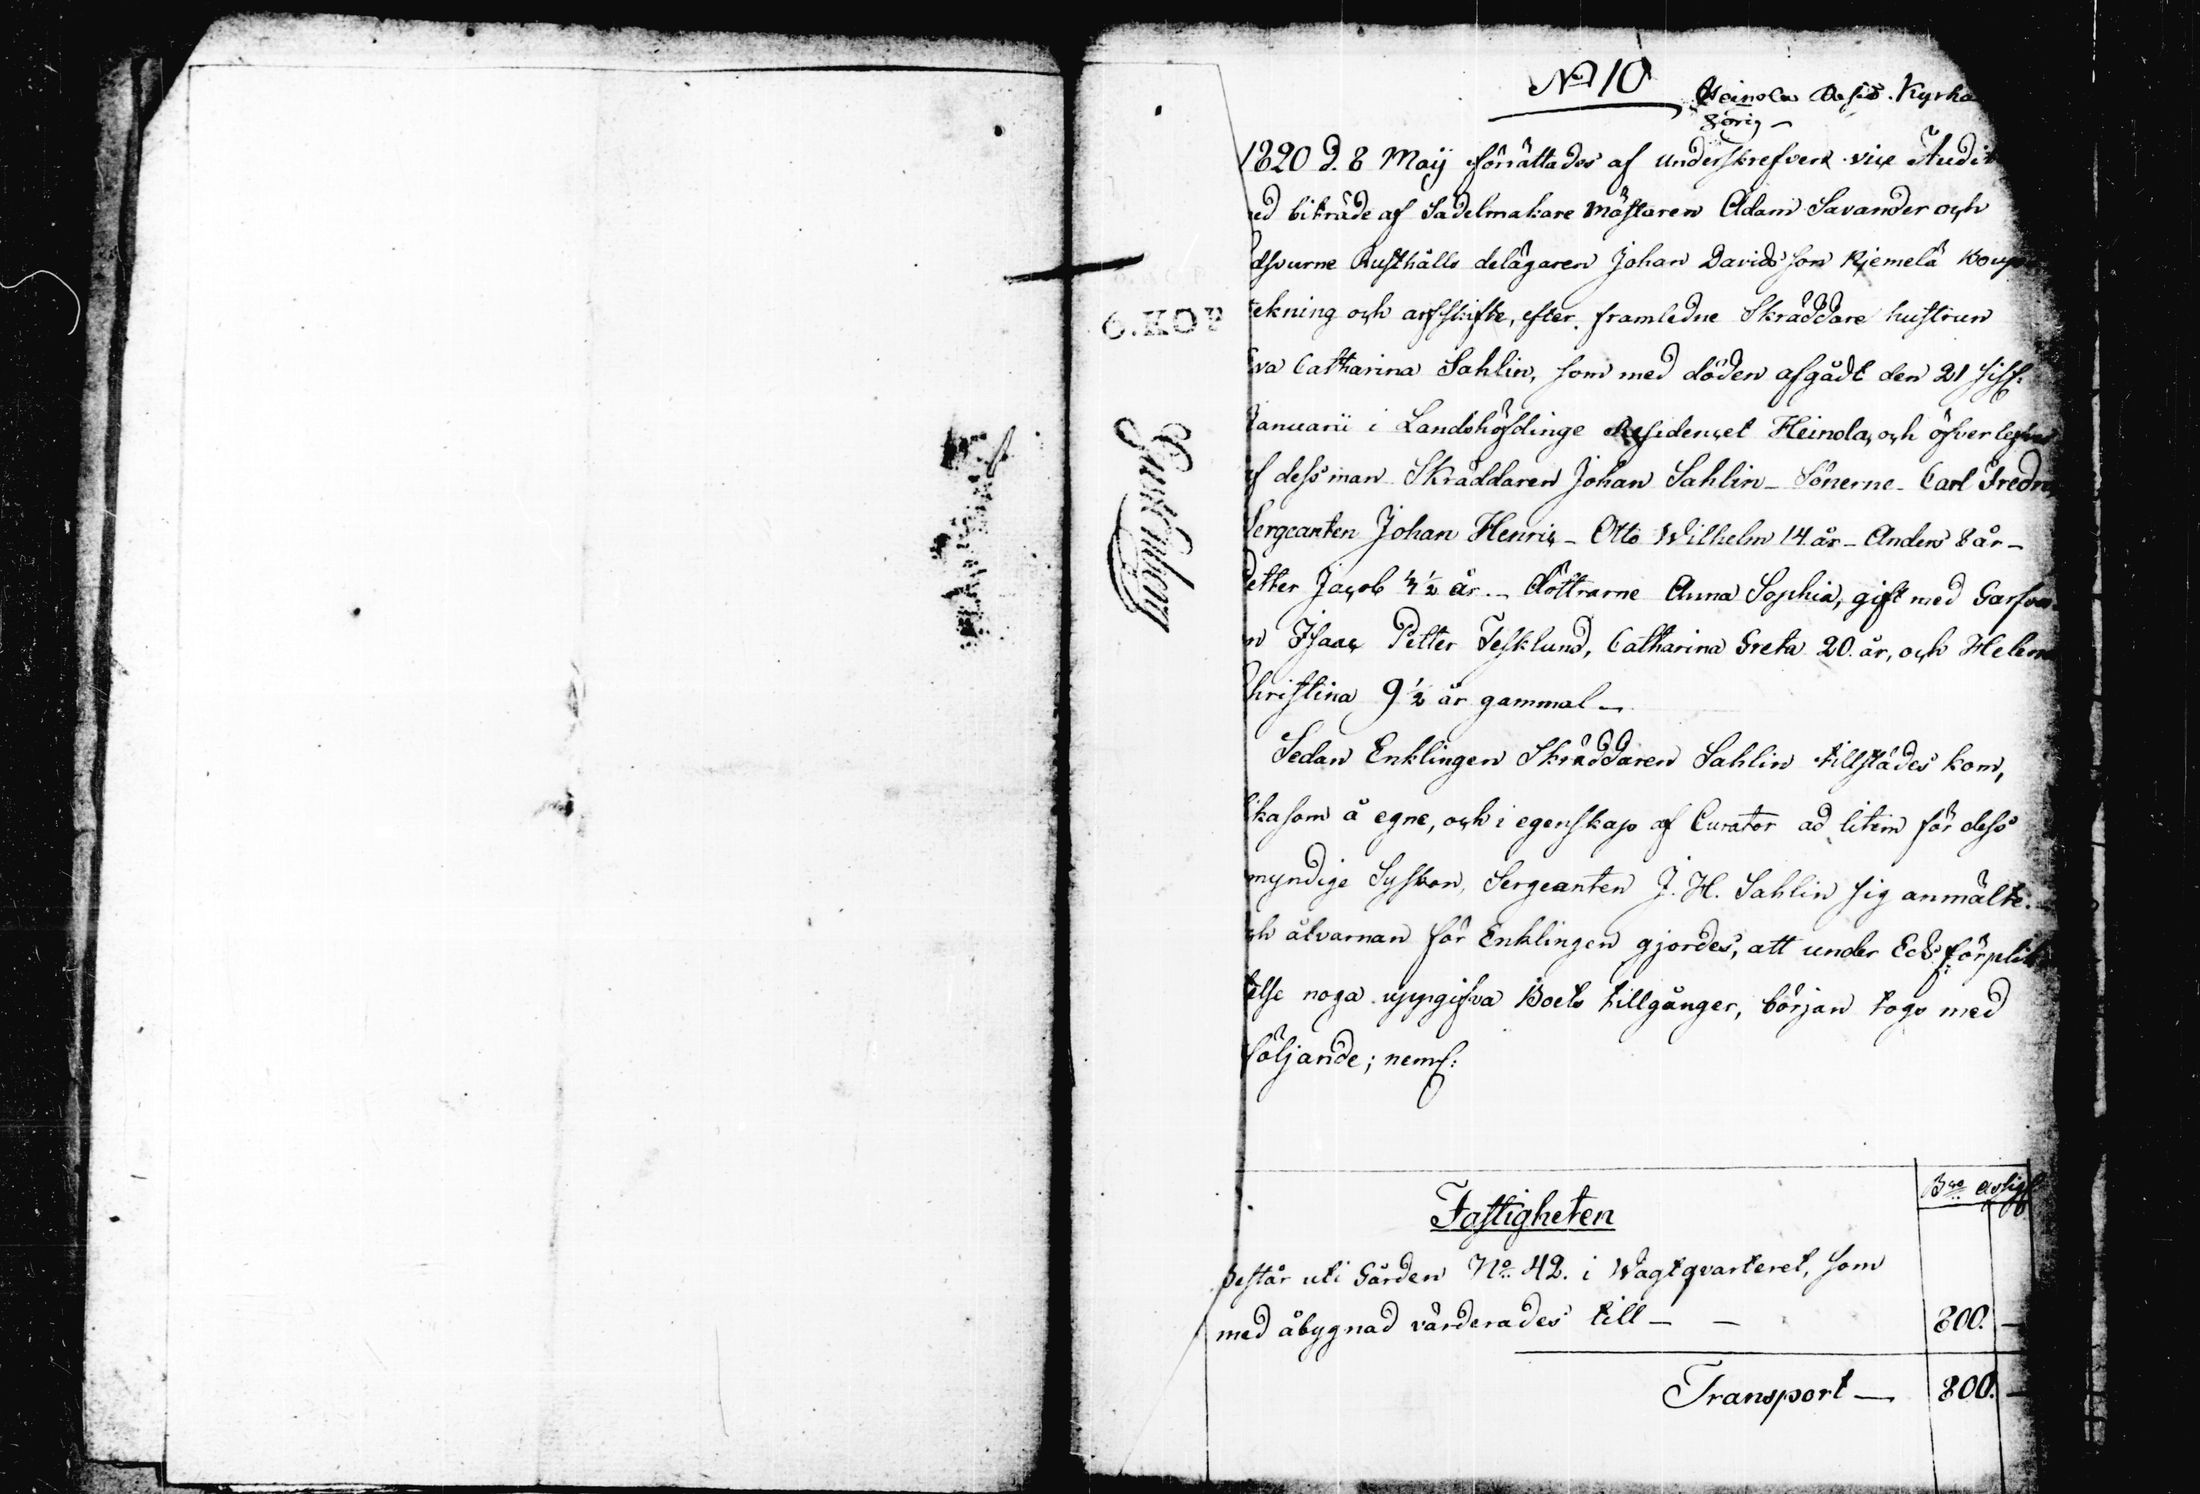 No 10
Heinola
1820 d. 8 Maij förrättades af underskrefven vice Audi
ed biträde af Sadelmakare Mästaren Adam Savander och
dsvurne Rusthålls delägaren Johan Davidsson Kjemelä Boup
ekning och arfskifte, efter framledne Skräddare hustrun
va Catharina Sahlin, som med döden afgådt den 21 sistl.
Januarii i Landshöfdinge Residencet Heinola, och öfverlefves
af dess man Skräddaren Johan Sahlin – Sönerne – Carl Fredr
Sergeanten Johan Henric – Otto Wilhelm 14 år – Anders 8 år –
etter Jacob ½ år – döttrarne Anna Sophia, gift med Garfva
n Isaac Petter Fesklund, Catharina Greta 20 år, och Helena
Christina 9 ½ år gammal –
Sedan Enklingen Skräddaren Sahlin tillstädes kom,
ikasom å egne, och i egenskap af Curator ad litem för dess
myndige Syskon, Sergeanten J. H. Sahlin sig anmälte.
och åtvarnan för Enklingen gjordes, att under Eds förplik
telse noga uppgifva Boets tillgånger, början togs med
följande; neml:
6.KOP
Fastigheten
Bco
Består uti Gården No 42. i Wagtqvarteret, som
med åbygnad värderades till – – 800. –
Transport – 800. –